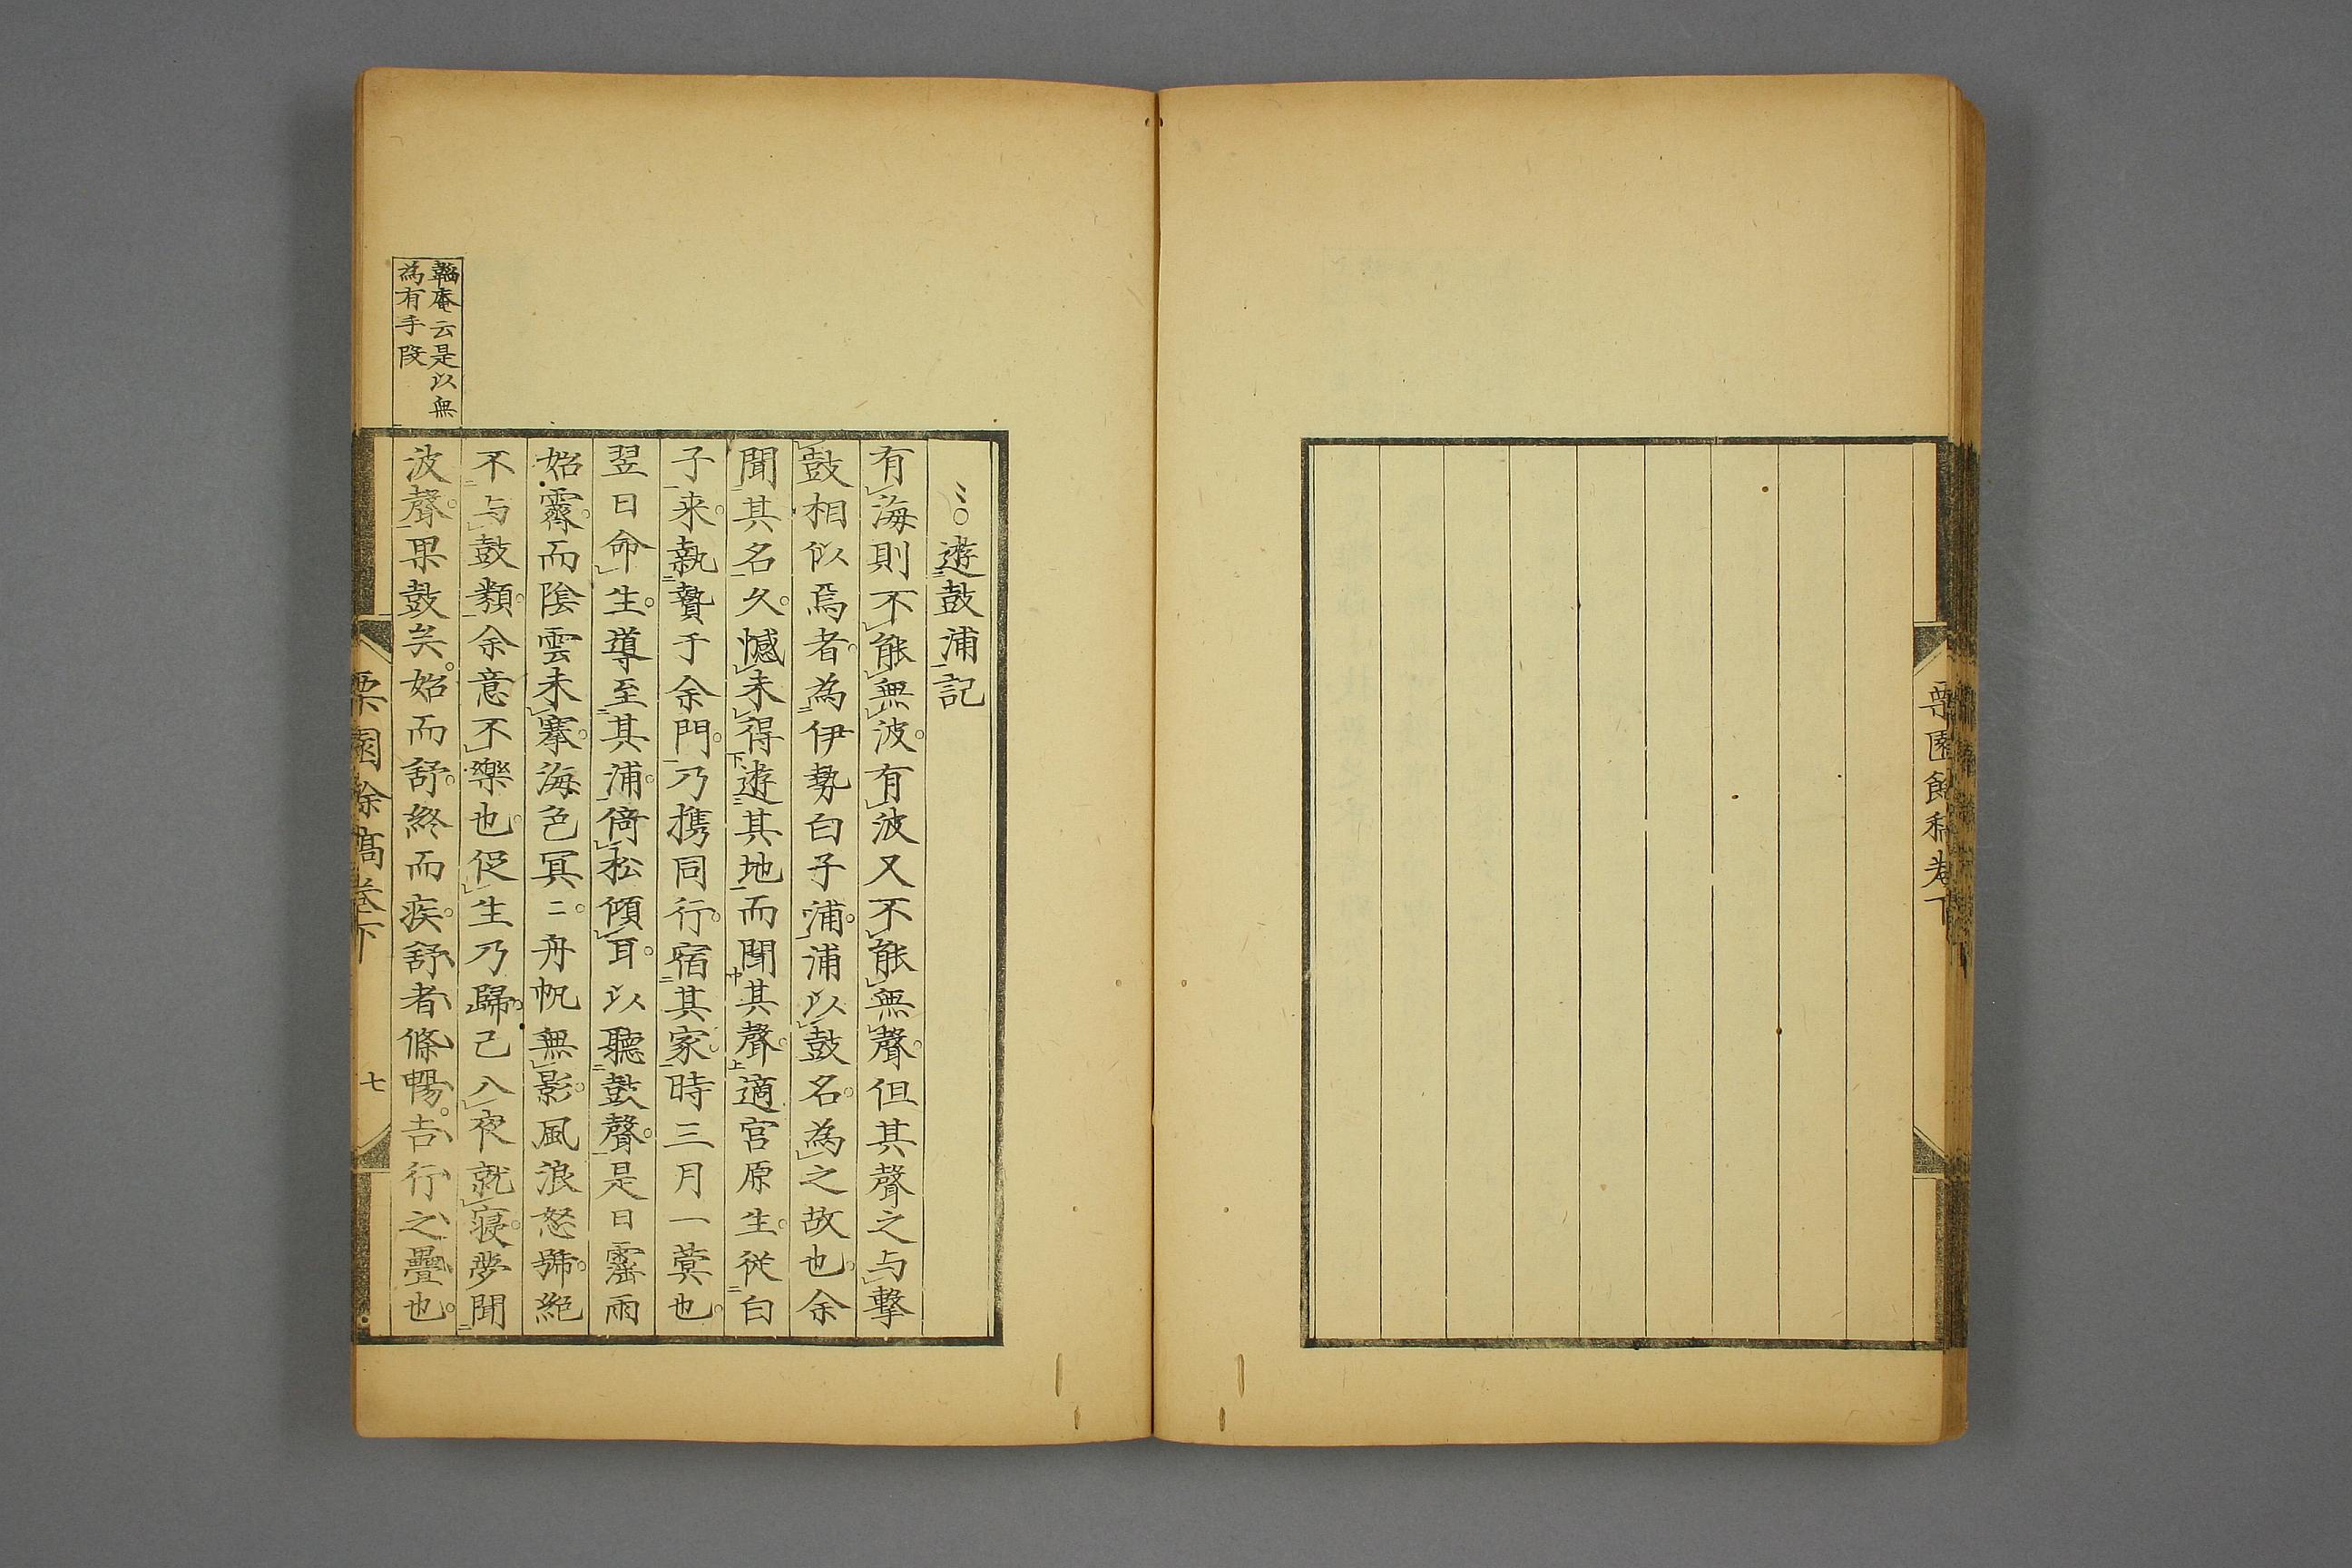 栗園餘稿卷下
遊鼓浦記
有海則不能無波有波又不能無聲但其聲之与擊
鼓相似焉者為伊勢白子浦浦以鼓名為之故也余
聞其名久憾未得遊其地而聞其聲適官原生從白
子来執贄于余門乃携同行宿其家時三月一蓂也
翌日命生導至其浦倚松傾耳以聽鼓聲是日霽雨
始霽而陰雲未搴海色冥〻舟帆無影風浪怒號絕
不与鼓類余意不樂也促生乃歸已八夜就寢夢聞
波聲果鼓矣始而舒終而疾舒者條暢吉行之疊也
韜庵云是以無
為有手段
栗園餘稿卷下
七